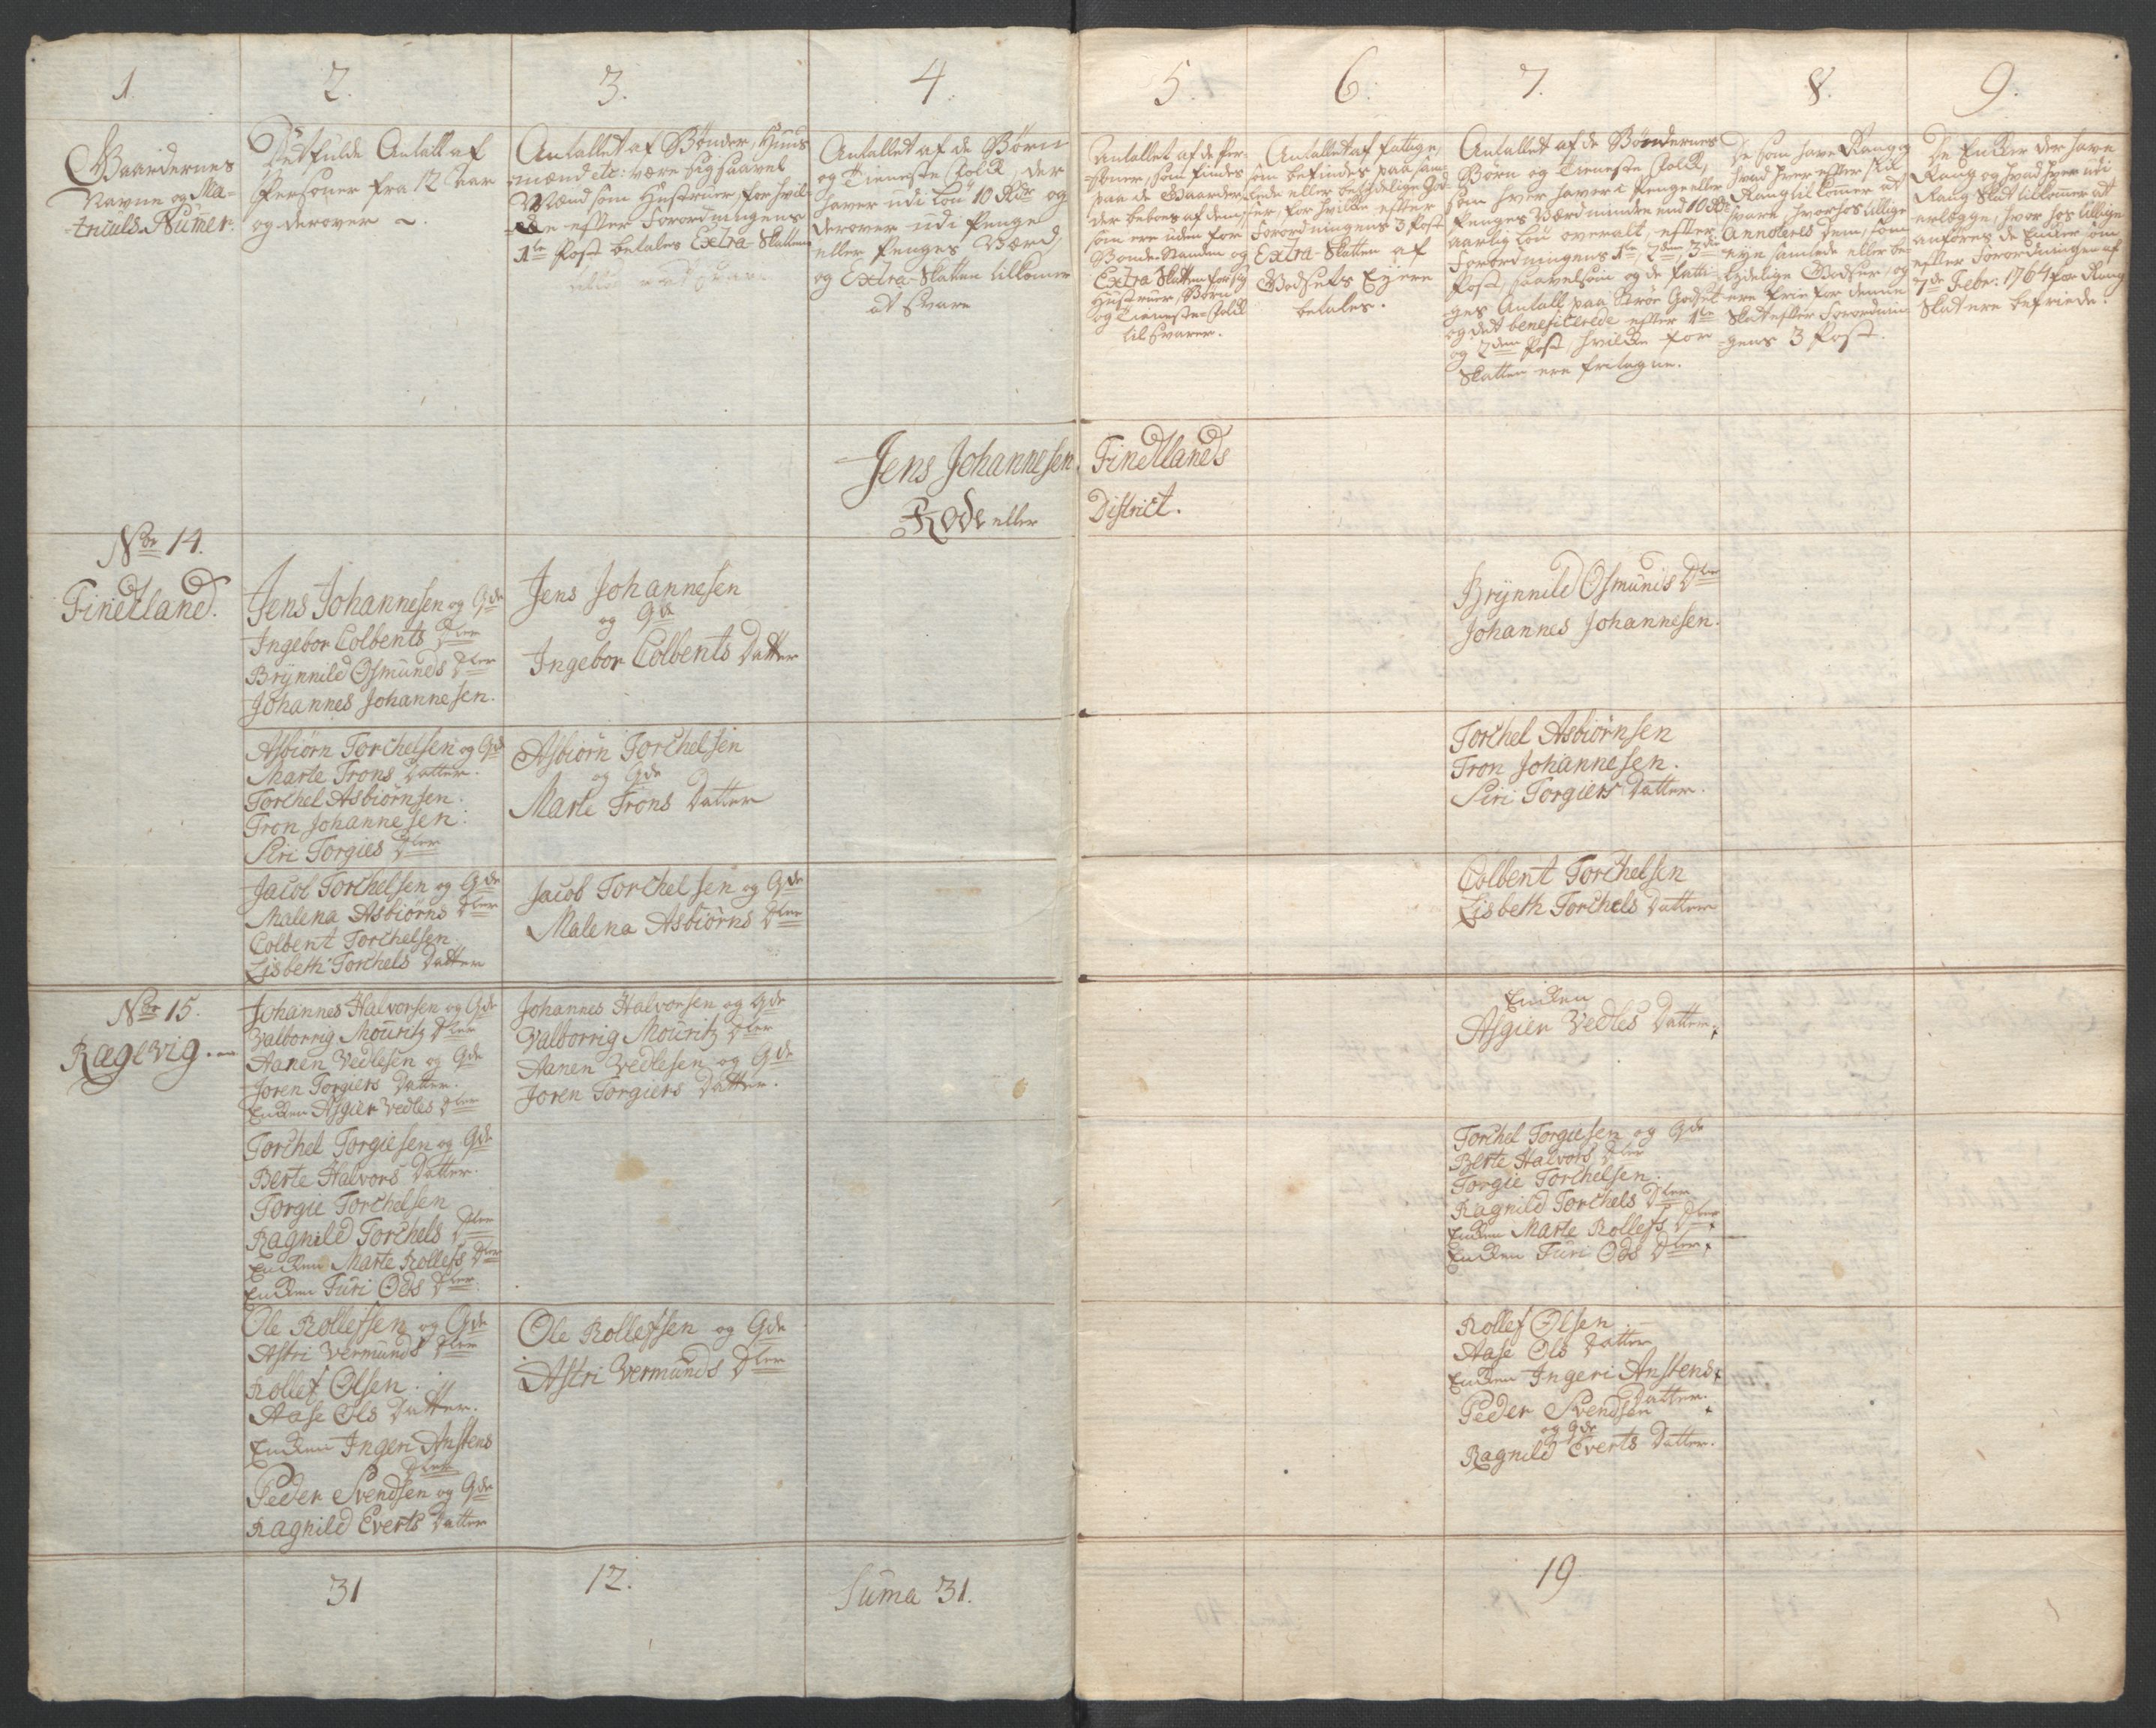 1
2.
3.
4.
5.
6.
7.
8.
9.
Gaardernes
Navne og Ma-
triculs Numer.
Det fulde Antall af
Personer fra 12 Aar
og derover
Antallet af Bønder, Huus
mænd etc: være sig saavel
Mænd som Hustruer, for hvil
efter Forordningens
1te Post betales Extra Skatten
Antallet af de Børn
og Tieneste Folck, der
haver udi Løn 10 Rdr og
derover udi Penge
eller Penges Værd,
og Extra-Skatten tilkomer
at Svare
Antallet af de Per-
soner, som findes
paa de Gaarder
der beboes af dem,
som ere uden for
Bonde-Standen og
Extra Skatten for sig
Hustruer, Børn
og Tieneste-Folck
til Svarer.
Antallet af fattige,
som befindes paa sam-
lede eller betydelige God
ser, for hvilke efter
Forordningens 3 Post
Extra-Skatten af
Godsets Eyere
betales.
Antallet af de Bøndernes
Børn og Tieneste Folck,
som hver haver i Penge eller
Penges Værd mindre end 10 Rdr
aarlig Løn overalt, efter
Forordningens 1te, 2den, 3die
Post, saavelsom og de fatti-
ges Antall paa Strøe Godset
og det beneficerede efter 1te
og 2den Post, hvilke for
Skatten ere fritagne.
De som have Rang og
hvad hver efter sin
Rang tilkomer at
svare, hvorhos tillige
Annoteres dem, som
eye samlede eller be-
tydelige Godser, og
ere frie for denne
Skat efter Forordnin-
gens 3 Post.
De Encker der have
Rang og hvad hver udi
Rang Skat tilkomer at
erlægge, hvor hos tillige
anføres de Encker som
efter Forordningen af
7de Febr: 1764 for Rang
Skat ere befriede.
Jens Johannesen Findlands
Rode eller District.
Nbr 14.
Findland.
Jens Johannesen og Gde
Ingebor Colbents Dtter
Brÿnnild Osmunds Dtter
Johannes Johannesen.
Jens Johannesen
og Gde
Ingebor Colbents Datter
Brÿnnild Osmunds Dter
Johannes Johannesen.
Asbiørn Torchelsen og Gde
Marte Trons Datter.
Torchel Asbiørnsen.
Tron Johannesen.
Siri Torgies Dter
Asbiørn Torchelsen
og Gde
Marte Trons Datter
Torchel Asbiørnsen
Tron Johannesen.
Siri Torgiers Datter.
Jacob Torchelsen og Gde
Malena Asbiørns Dter
Colbent Torchelsen
Lisbeth Torchels Datter
Jacob Torchelsen og Gde
Malena Asbiørns Dter
Colbent Torchelsen
Lisbeth Torchels Datter
Nbr 15.
Rægevig.
Johannes Halvorsen og Gde
Valborrig Mouritz Dter
Aanen Vedlesen og Gde
Joren Torgiers Datter.
Encken Asgier Vedles Dter
Johannes Halvorsen og Gde
Valborrig Mouritz Dter
Aanen Vedlesen og Gde
Joren Torgiers Datter.
Encken
Asgier Vedles Datter
Torchel Torgiesen og Gde
Berte Halvors Datter.
Torgie Torchelsen
Ragnild Torchels Dter
Encken Marte Rollefs Dter
Encken Turi Ods Dter
Torchel Torgiesen og Gde
Berte Halvors Dter
Torgie Torchelsen.
Ragnild Torchels Dter
Encken Marte Rollefs Dter
Encken Turi Ods Dter
Ole Rollefssen og Gde
Astri Vermunds Dter
Rollef Olsen.
Aase Ols Datter.
Encken Ingeri Anstens
Dter
Peder Svendsen og Gde
Ragnild Everts Datter
Ole Rollefssen og Gde
Astri Vermunds Dter
Rollef Olsen.
Aase Ols Datter
Encken Ingeri Anstens
Datter.
Peder Svendsen
og Gde
Ragnild Everts Datter.
31
12.
Suma 31.
19